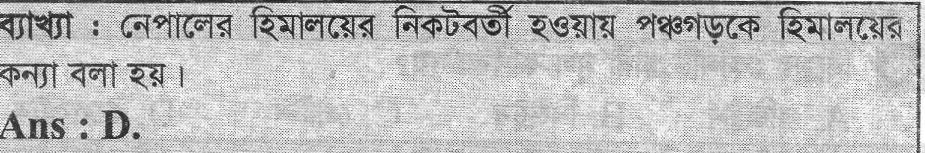 ব্যাখ্যা : নেপালের হিমালয়ের নিকটবর্তী হওয়ায় পঞ্চগড়কে হিমালয়ের
কন্যা বলা হয়।
Ans : D.